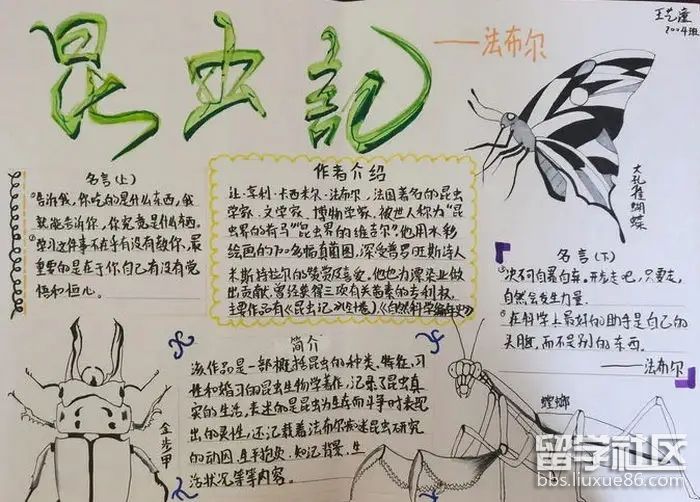 昆虫記
——法布尔
2004班
大孔雀蝴蝶
名言(上)
告诉我,你吃的是什么东西,我
就能告诉你,你究竟是什么东西。
学习这件事不在乎有没有人教你,最
重要的是在于你自己有没有觉
悟和恒心。
作者介绍
让·亨利·卡西米尔·法布尔,法国著名的昆虫
学家、文学家、博物学家,被世人称为“昆
虫界的荷马”“昆虫界的维吉尔”他用水彩
绘画的700多幅真菌图,深受普罗旺斯诗人
米斯特拉尔的赞赏及喜爱,他也为漂染业做
出贡献,曾经获得三项有关茜素的专利权,
主要作品有《昆虫记》《自然科学编年史》
名言(下)
决不自暴自弃。开步走吧,只要走,
自然会发生力量.
在科学上最好的助手是自己的
头脑,而不是别的东西。
——法布尔
简介
该作品是一部概括昆虫的种类、特征、习
性和婚习的昆虫生物学著作,记录了昆虫真
实的生活,表述的是昆虫为生存而斗争时表现
出的灵性,还记载着法布尔痴迷昆虫研究
的动因、生平抱负、知识背景、生
活状况等等内容。
金步甲
螳螂
留学社区
bbs.liuxue86.com